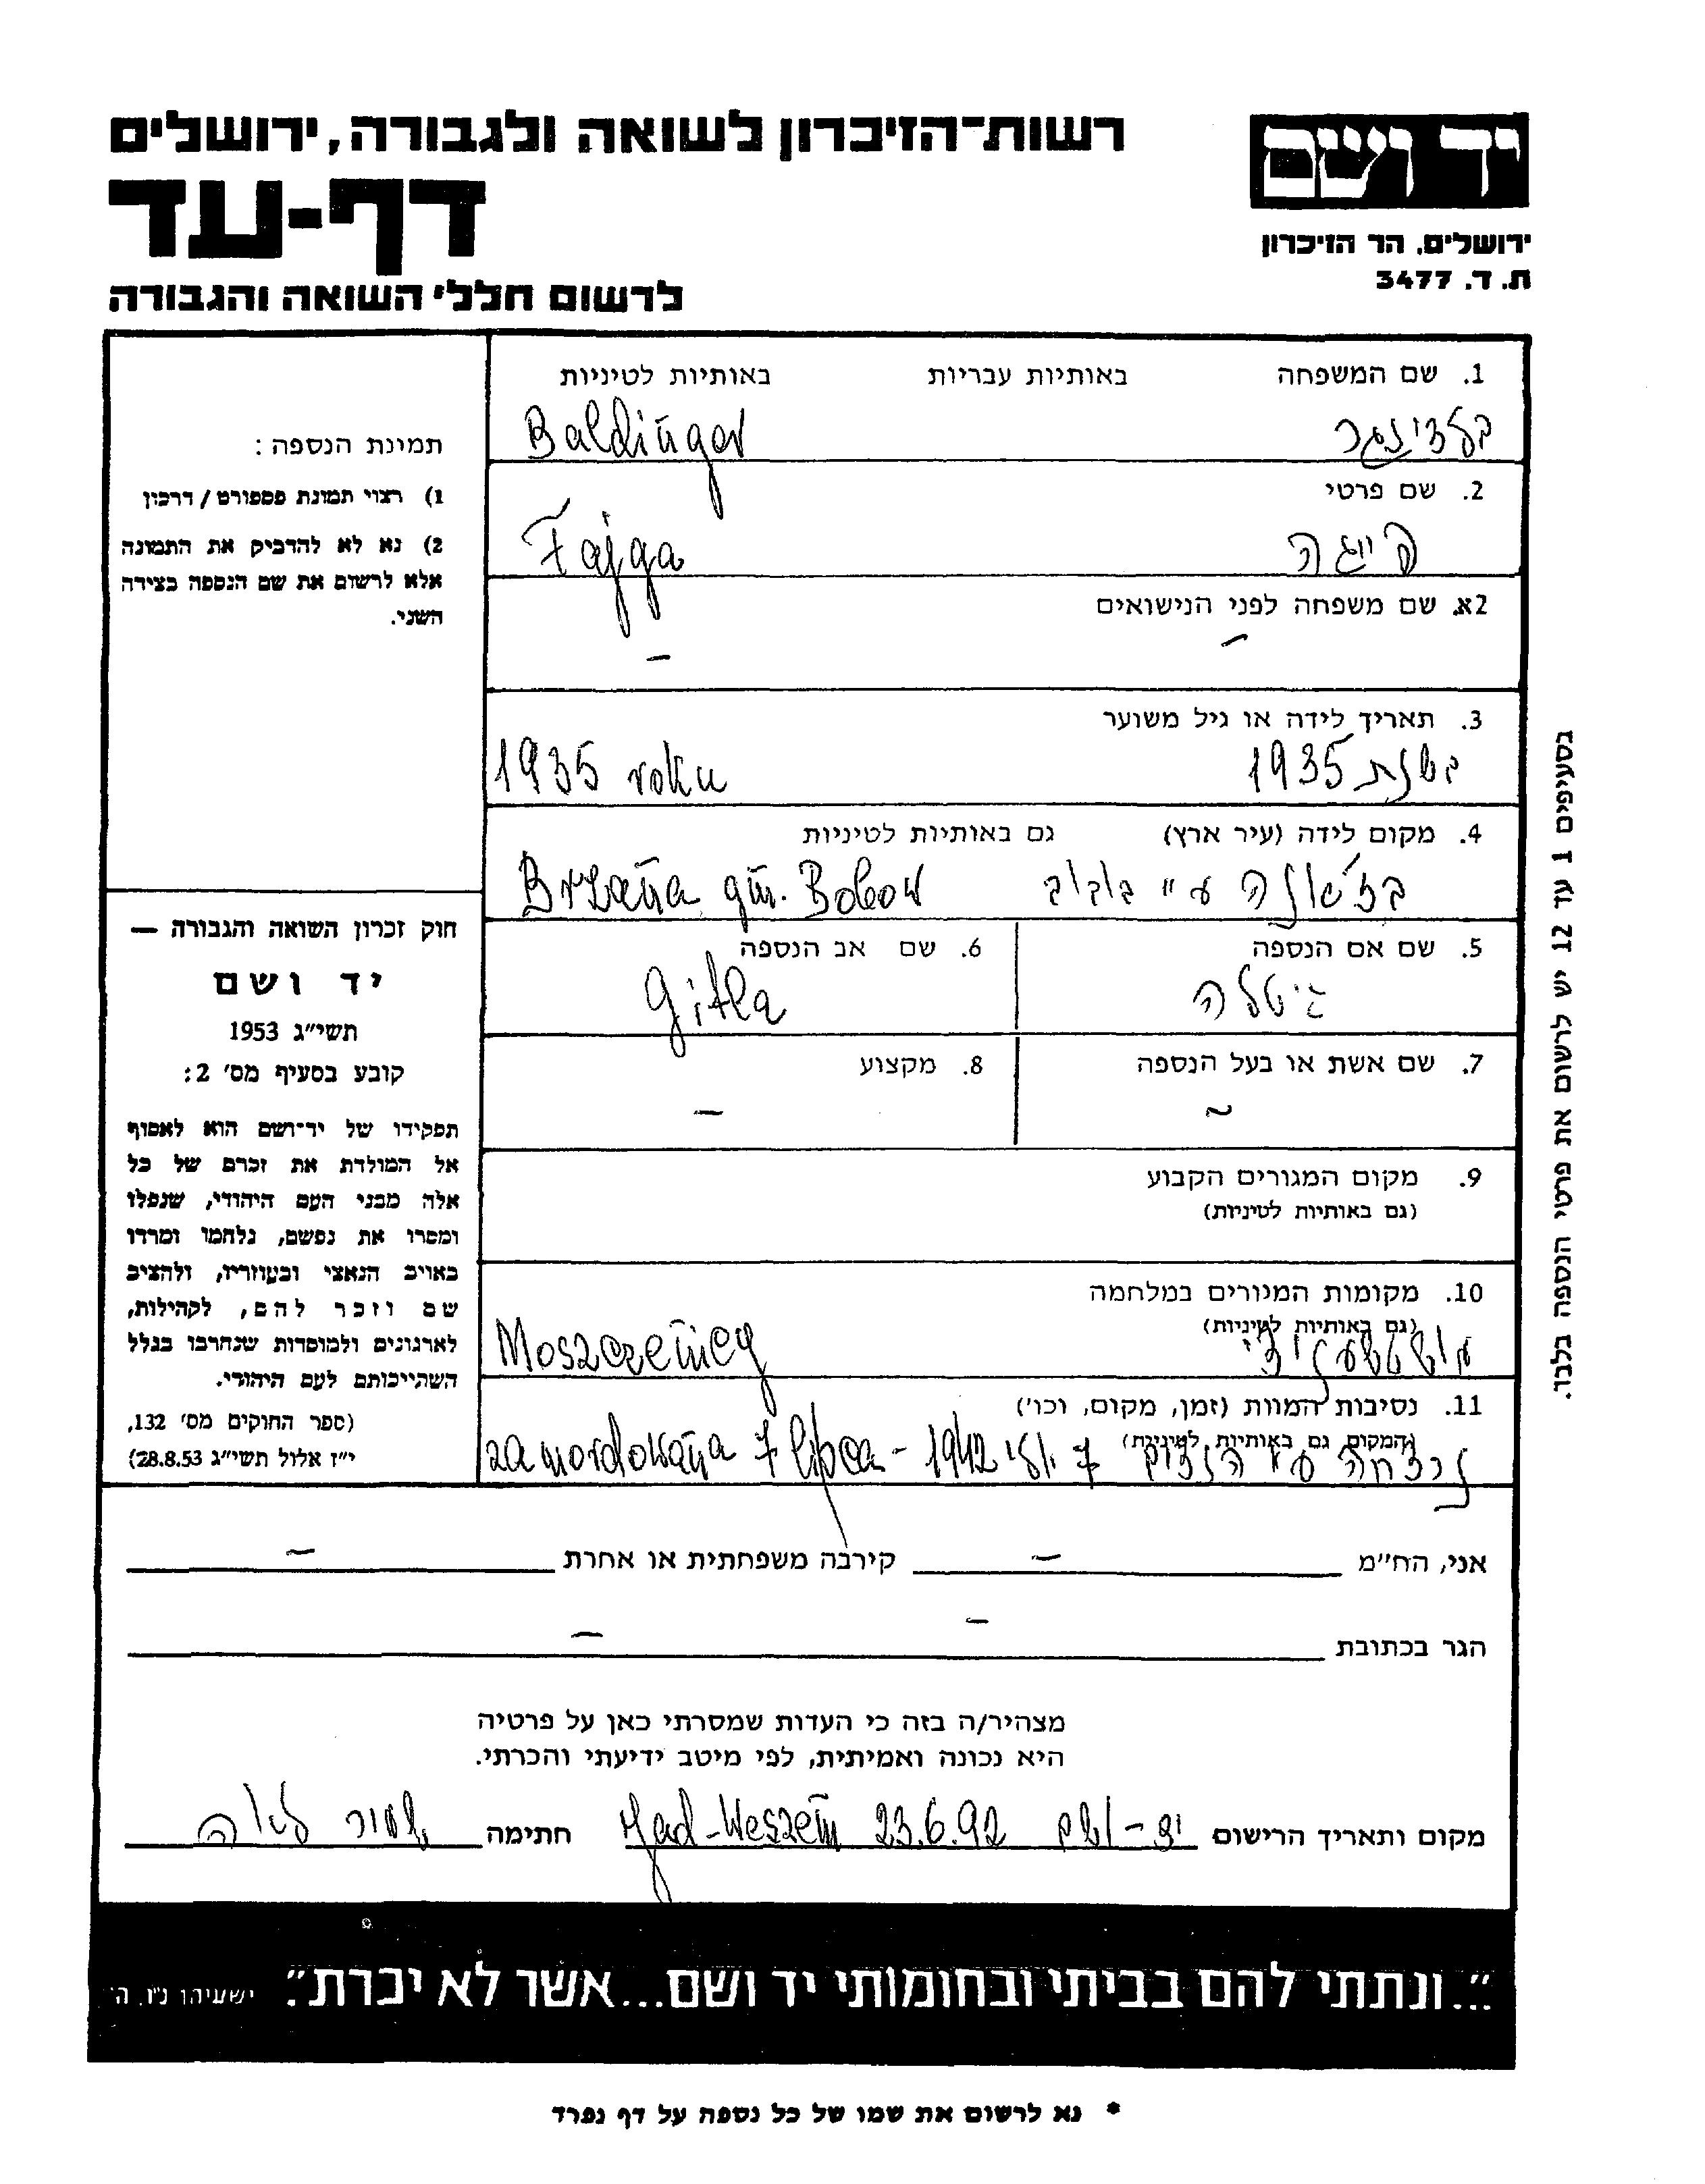 יד ושם
ירושלים, הר הזיכרון
ת. ד. 3477
רשות־הזיכרון לשואה ולגבורה, ירושלים
דף-עד
לרשום חללי השואה והגבורה
1. שם המשפחה באותיות עבריות באותיות לטיניות
בלדינגר Baldinger
2. שם פרטי
פייגה Fajga
2א. שם משפחה לפני הנישואים
– –
3. תאריך לידה או גיל משוער
בשנת 1935 1935 roku
4. מקום לידה (עיר ארץ) גם באותיות לטיניות
בז'אנה ע"י בובוב Brzana gm. Bobow
5. שם אם הנספה 6. שם אב הנספה
גיטלה Gitla
7. שם אשת או בעל הנספה 8. מקצוע
~ –
9. מקום המגורים הקבוע
(גם באותיות לטיניות)
10. מקומות המגורים במלחמה
(גם באותיות לטיניות)
Moszczenicy
11. נסיבות המוות (זמן, מקום, וכו')
(המקום גם באותיות לטיניות)
נרצחה ע"י 7 יולי 1942 - zamordowana 7 lipca
תמינת הנספה:
1) רצוי תמונת פספורט / דרכון
2) נא לא להדביק את התמונה
אלא לרשום את שם הנספה בצידה
השני.
חוק זכרון השואה והגבורה —
יד ושם
תשי״ג 1953
קובע בסעיף מס' 2:
תפקידו של יד־ושם הוא לאסוף
אל המולדת את זכרם של כל
אלה מבני העם היהודי, שנפלו
ומסרו את נפשם, נלחמו ומרדו
באויב הנאצי ובעוזריו, ולהציב
שם וזכר להם, לקהילות,
לארגונים ולמוסדות שנחרבו בגלל
השתייכותם לעם היהודי.
(ספר החוקים מס' 132,
י״ז אלול תשי״ג 28.8.53)
בסעיפים 1 עד 12 יש לרשום את פרטי הנספה בלבד.
אני, הח״מ – קירבה משפחתית או אחרת –
הגר בכתובת – –
מצהיר/ה בזה כי העדות שמסרתי כאן על פרטיה
היא נכונה ואמיתית, לפי מיטב ידיעתי והכרתי.
מקום ותאריך הרישום יד-ושם 23.6.92 Jad-Weszem חתימה לאה
״...ונתתי להם בביתי ובחומותי יד ושם...אשר לא יכרת״. ישעיהו נ״ו, ה'
* נא לרשום את שמו של כל נספה על דף נפרד